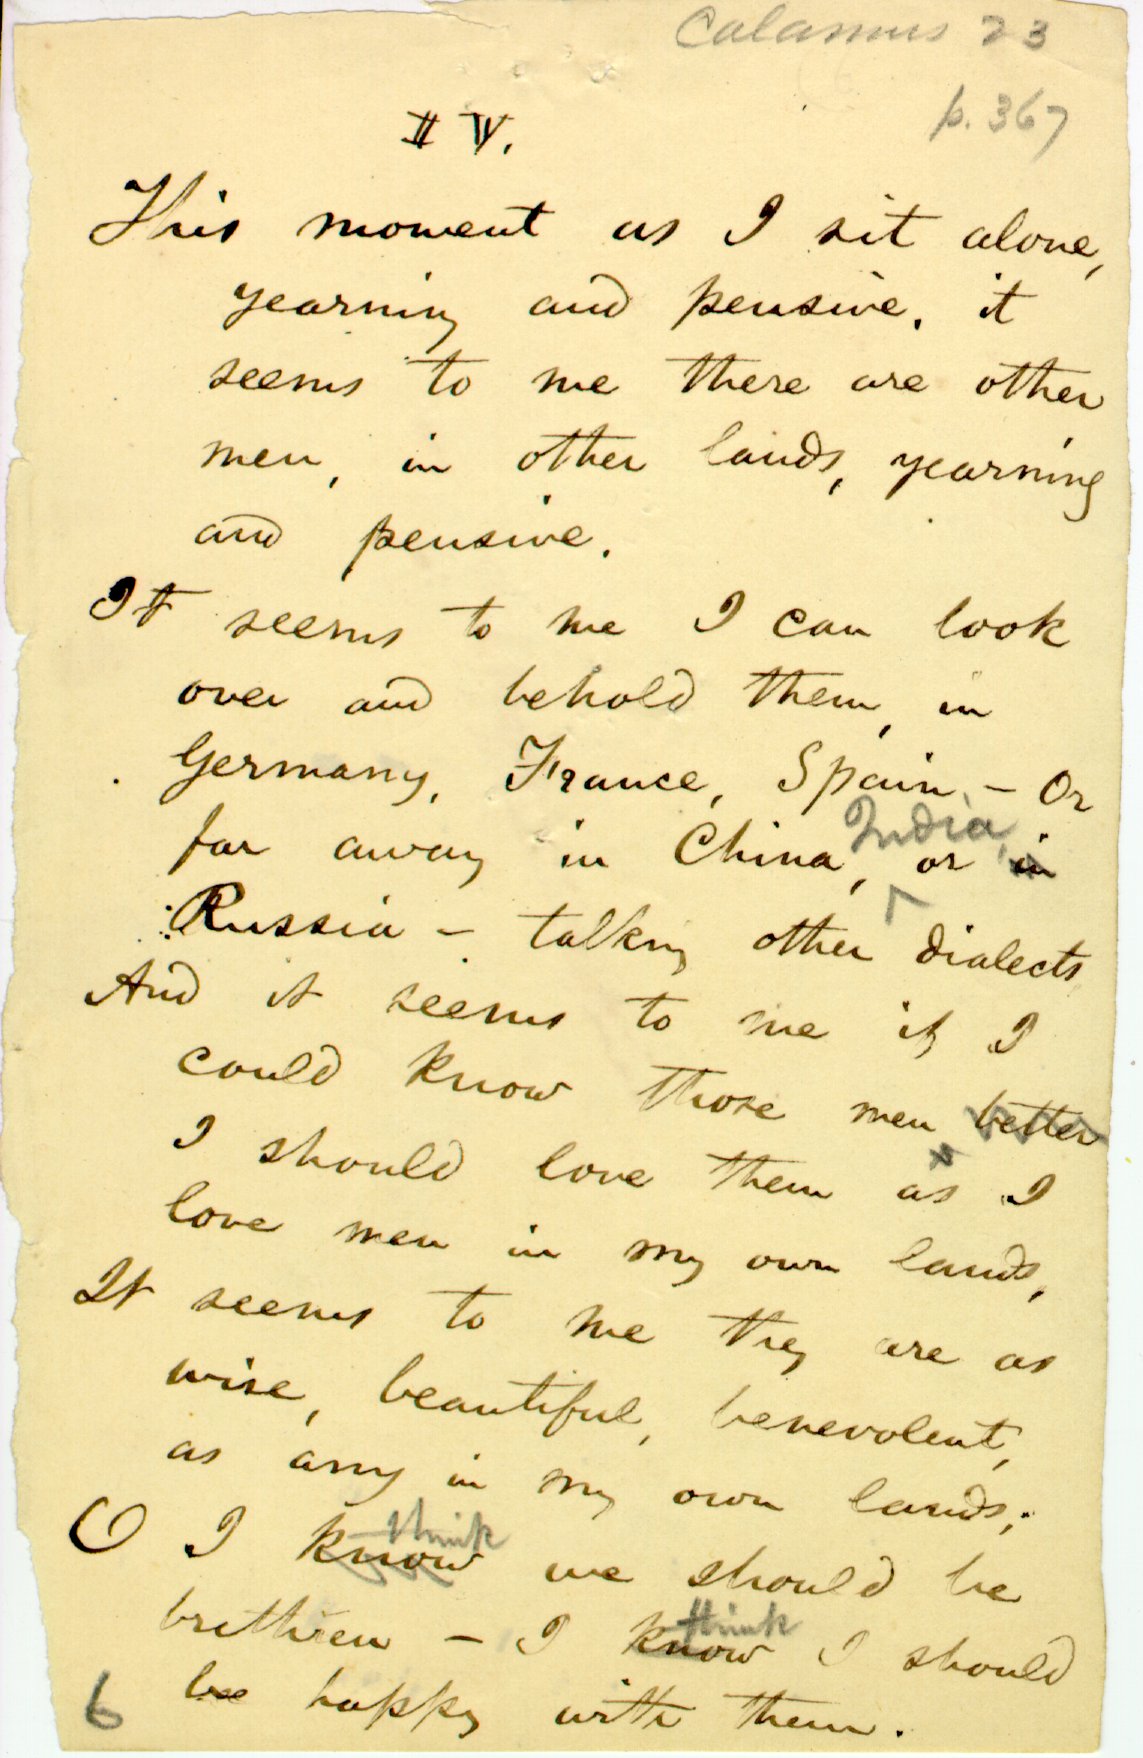 Calamus 23
p. 367
II V.
This moment as I sit alone,
yearning and pensive, it
seems to me there are other
men, in other lands, yearning
and pensive.
It seems to me I can look
over and behold them, in
Germany, France, Spain — Or
far away in China, India, or in
Russia — talking other dialects
And it seems to me if I
could know those men better
I should love them as I
love men in my own lands,
It seems to me they are as
wise, beautiful, benevolent,
as any in my own lands;
think
O I know we should be
think
brethren — I know I should
be happy with them.
6